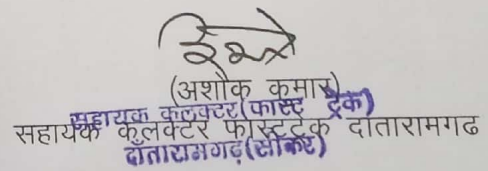 (अशोक कुमार)
सहायक कलक्टर(फास्ट ट्रैक)
सहायक कलक्टर फास्टट्रेक दातारामगढ
दाँतारामगढ़(सीकर)